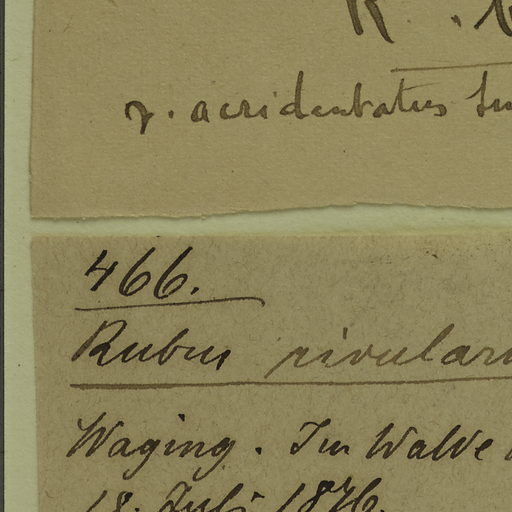 R.
γ. acridentatus
466.
Rubus rivular
Waging. Im Walde
18. Juli 1876.